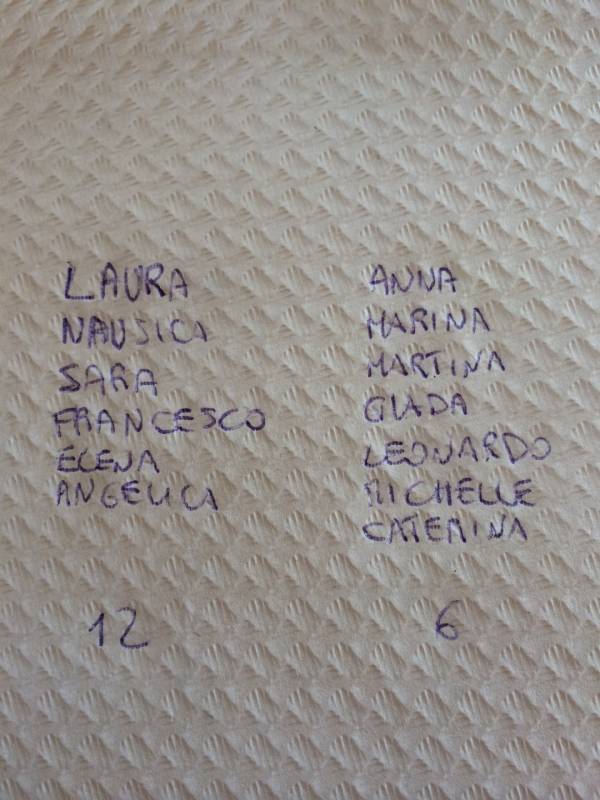 LAURA
NAUSICA
SARA
FRANCESCO
ELENA
ANGELICA
12
ANNA
MARINA
MARTINA
GIADA
LEONARDO
MICHELLE
CATERINA
6